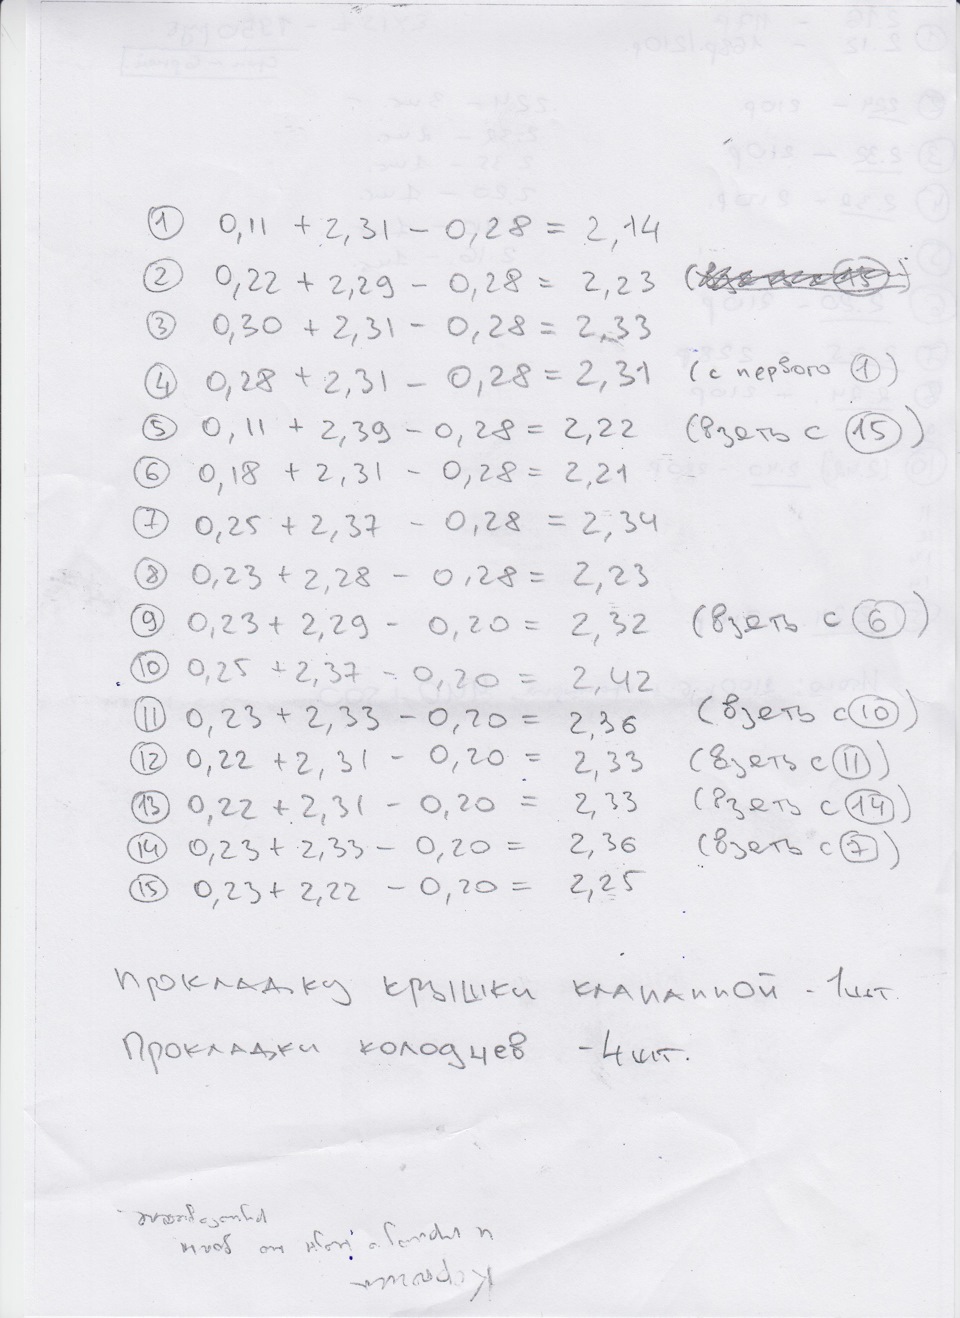 ① 0,11 + 2,31 - 0,28 = 2,14
② 0,22 + 2,29 - 0,28 = 2,23
③ 0,30 + 2,31 - 0,28 = 2,33
④ 0,28 + 2,31 - 0,28 = 2,31 (с первого ①)
⑤ 0,11 + 2,39 - 0,28 = 2,22 (взеть с ⑮)
⑥ 0,18 + 2,31 - 0,28 = 2,21
⑦ 0,25 + 2,37 - 0,28 = 2,34
⑧ 0,23 + 2,28 - 0,28 = 2,23
⑨ 0,23 + 2,29 - 0,20 = 2,32 (взеть с ⑥)
⑩ 0,25 + 2,37 - 0,20 = 2,42
⑪ 0,23 + 2,33 - 0,20 = 2,36 (взеть с ⑩)
⑫ 0,22 + 2,31 - 0,20 = 2,33 (взеть с ⑪)
⑬ 0,22 + 2,31 - 0,20 = 2,33 (взеть с ⑭)
⑭ 0,23 + 2,33 - 0,20 = 2,36 (взеть с ⑦)
⑮ 0,23 + 2,22 - 0,20 = 2,25
Прокладку крышки клапанной - 1шт.
Прокладки колодцев - 4шт.